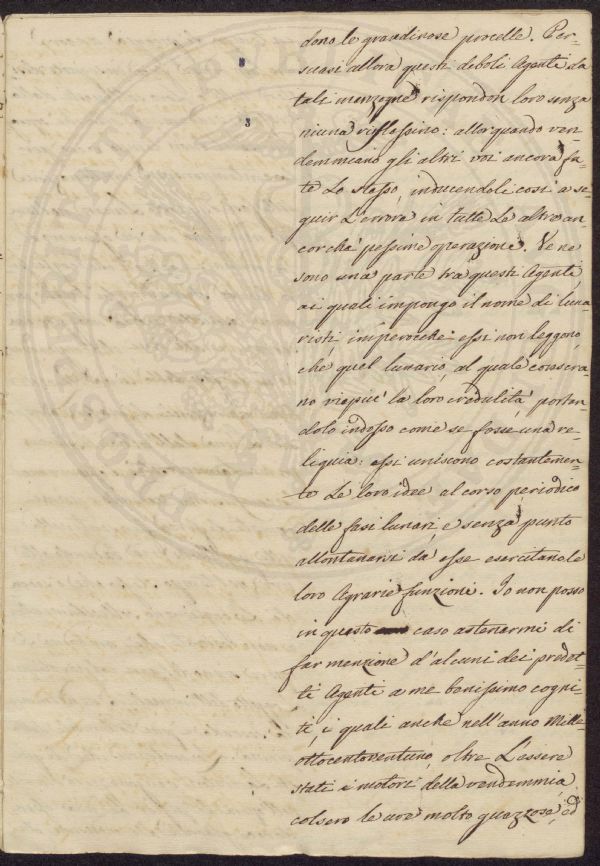 dono le grandinose procelle. Per-
suasi allora questi deboli Agenti da
tali menzogne rispondon loro senza
niuna riflessino: allorquando ven-
demmiano gli altri voi ancora fa-
te Lo stesso, inducendoli così a se-
guir L'errore in tutte Le altre an-
corchà pessime operazione. Ve ne
sono una parte trà questi Agenti,
ai quali impongo il nome di luna-
risti, imperocche essi non leggono,
chè quel lunario, al quale consacra-
no viapiù la loro credulità, portan-
dolo indosso come se fosse una re-
liquia: essi uniscono costantemen-
te Le loro idee al corso periodico
delle fasi lunari, e senza punto
allontanarsi dà esse esercitano le
loro Agrarie funzioni. Io non posso
in questo caso astenarmi di
far menzione d'alcuni dei predet-
ti Agenti a me benissimo cogni-
ti, i quali anche nell'anno Mille
ottocentoventuno, oltre L'essere
stati i motori della vendemmia,
colsero le uve molto guazzose, ed